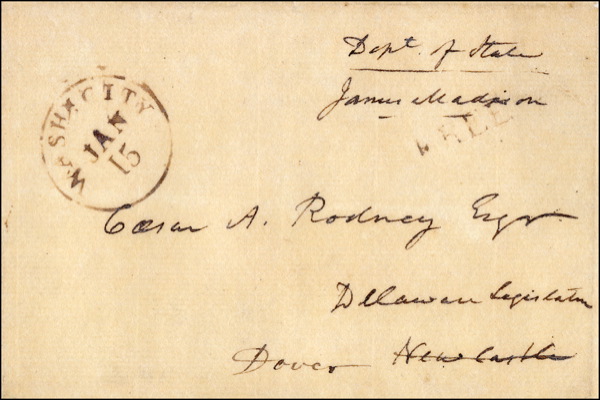 Dept. of State
James Madison
FREE
WASH. CITY
JAN
15
Cæsar A. Rodney Esqr
Delaware Legislature
Dover Newcastle